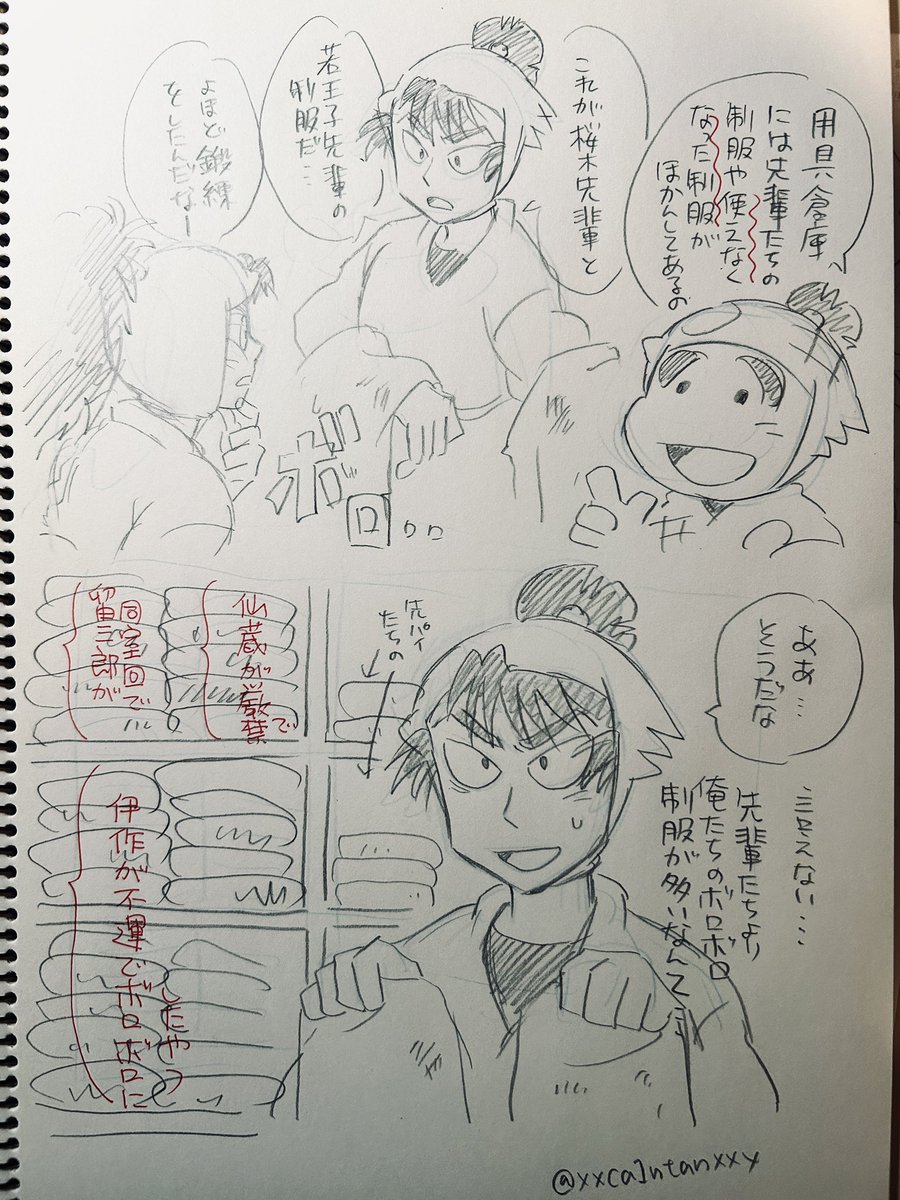 用具倉庫
には先輩たちの
制服や使えなく
なった制服が
ほかんしてあるの
これが桜木先輩と
若王子先輩の
制服だ…
よほど鍛練
をしたんだなー
ボロ
ボロ
ロロ
ああ…
そうだな
言えない…
先輩たちより
俺たちのボロボロ
制服が多いなんて…
先パイ
たちの
仙蔵が
で
同室回で
留三郎が
伊作が不運でボロボロに
したやつ
@xxca1ntanxxy